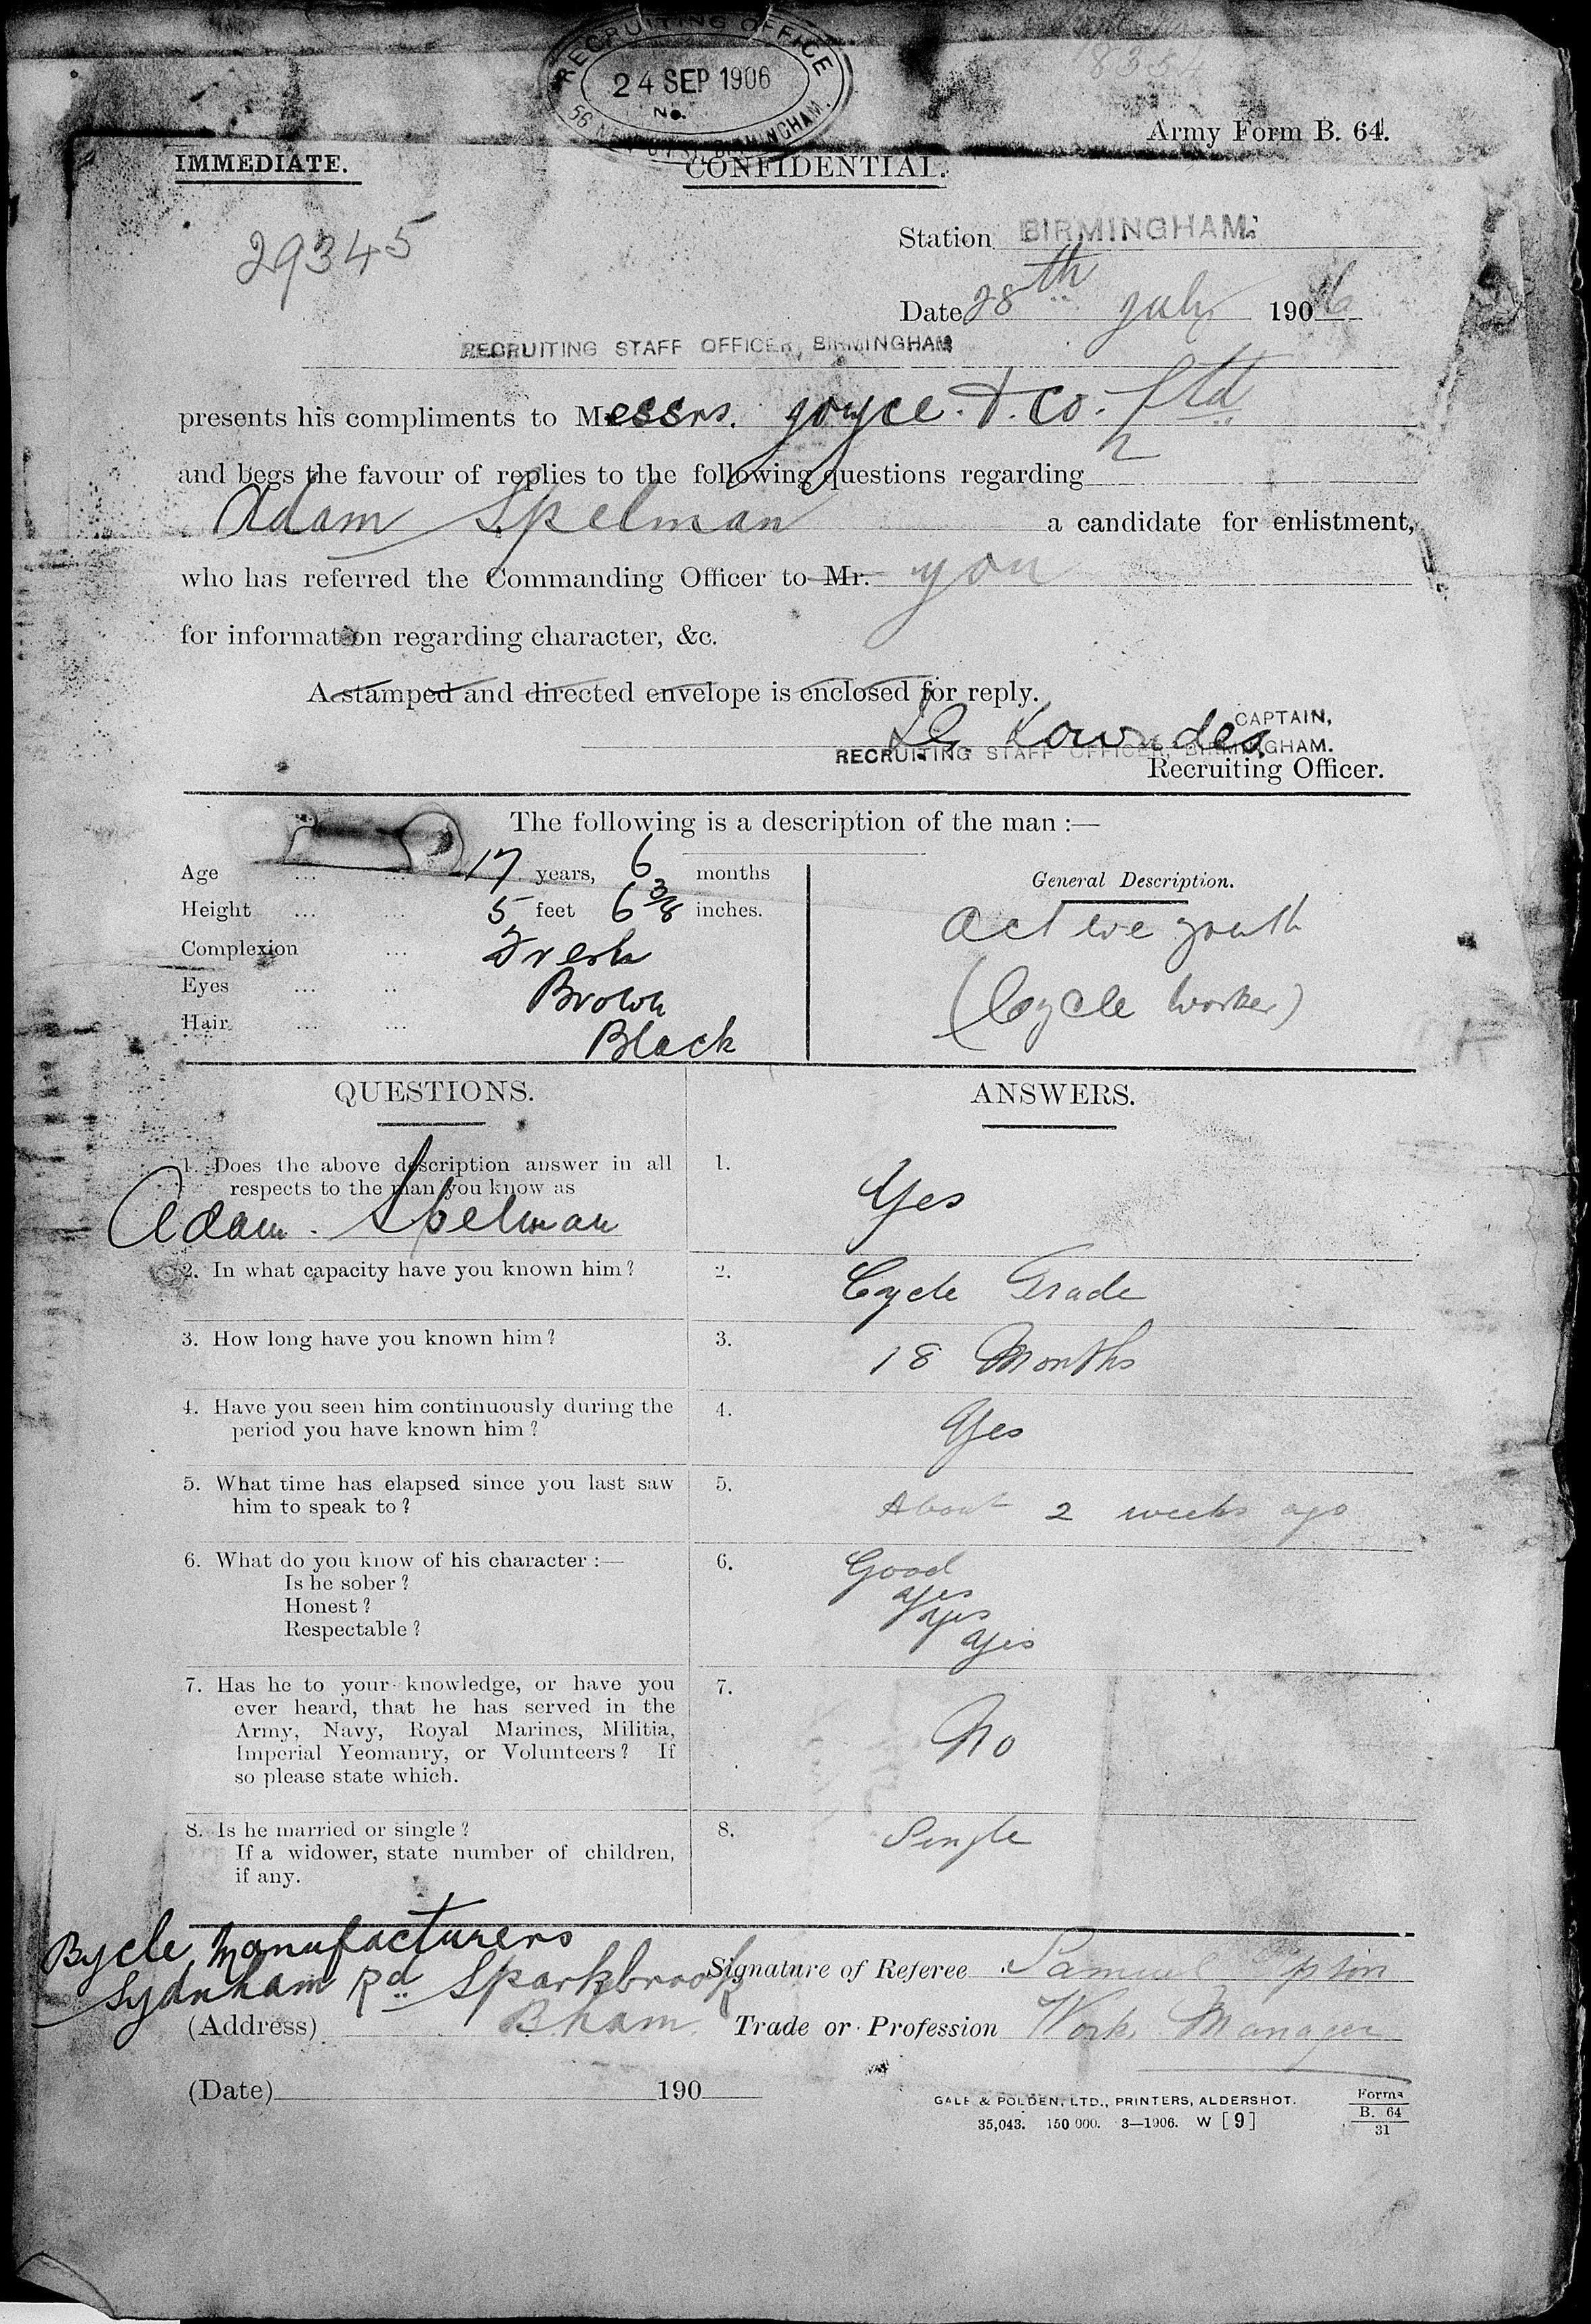 RECRUITING OFFICE
24 SEP 1906
No.
BIRMINGHAM.
Army Form B. 64.
IMMEDIATE.
CONFIDENTIAL.
29345
Station BIRMINGHAM.
Date 28th July 1906
RECRUITING STAFF OFFICER, BIRMINGHAM
presents his compliments to Messrs. Joyce & Co. Ltd
and begs the favour of replies to the following questions regarding
Adam Spelman a candidate for enlistment,
who has referred the Commanding Officer to Mr. you
for information regarding character, &c.
A stamped and directed envelope is enclosed for reply.
CAPTAIN,
RECRUITING STAFF OFFICER, BIRMINGHAM.
Recruiting Officer.
The following is a description of the man :—
Age ... ... 17 years, 6 months
Height ... ... 5 feet 6 3/8 inches.
Complexion ... Fresh
Eyes ... .. Brown
Hair ... ... Black
General Description.
Active youth
(Cycle Worker)
QUESTIONS.
ANSWERS.
1. Does the above description answer in all
respects to the man you know as
Adam Spelman
1. Yes
2. In what capacity have you known him?
2. Cycle Trade
3. How long have you known him?
3. 18 Months
4. Have you seen him continuously during the
period you have known him?
4. Yes
5. What time has elapsed since you last saw
him to speak to?
5. About 2 weeks ago
6. What do you know of his character :—
Is he sober?
Honest?
Respectable?
6. Good
yes
yes
yes
7. Has he to your knowledge, or have you
ever heard, that he has served in the
Army, Navy, Royal Marines, Militia,
Imperial Yeomanry, or Volunteers? If
so please state which.
7. No
8. Is he married or single?
If a widower, state number of children,
if any.
8. Single
Bycle Manufacturers
Sydnham Rd Sparkbrook
Signature of Referee Samuel
(Address) B.ham
Trade or Profession Work Manager
(Date) 190
GALE & POLDEN, LTD., PRINTERS, ALDERSHOT.
35,043. 150 000. 3—1906. W [9]
Forms
B. 64
31